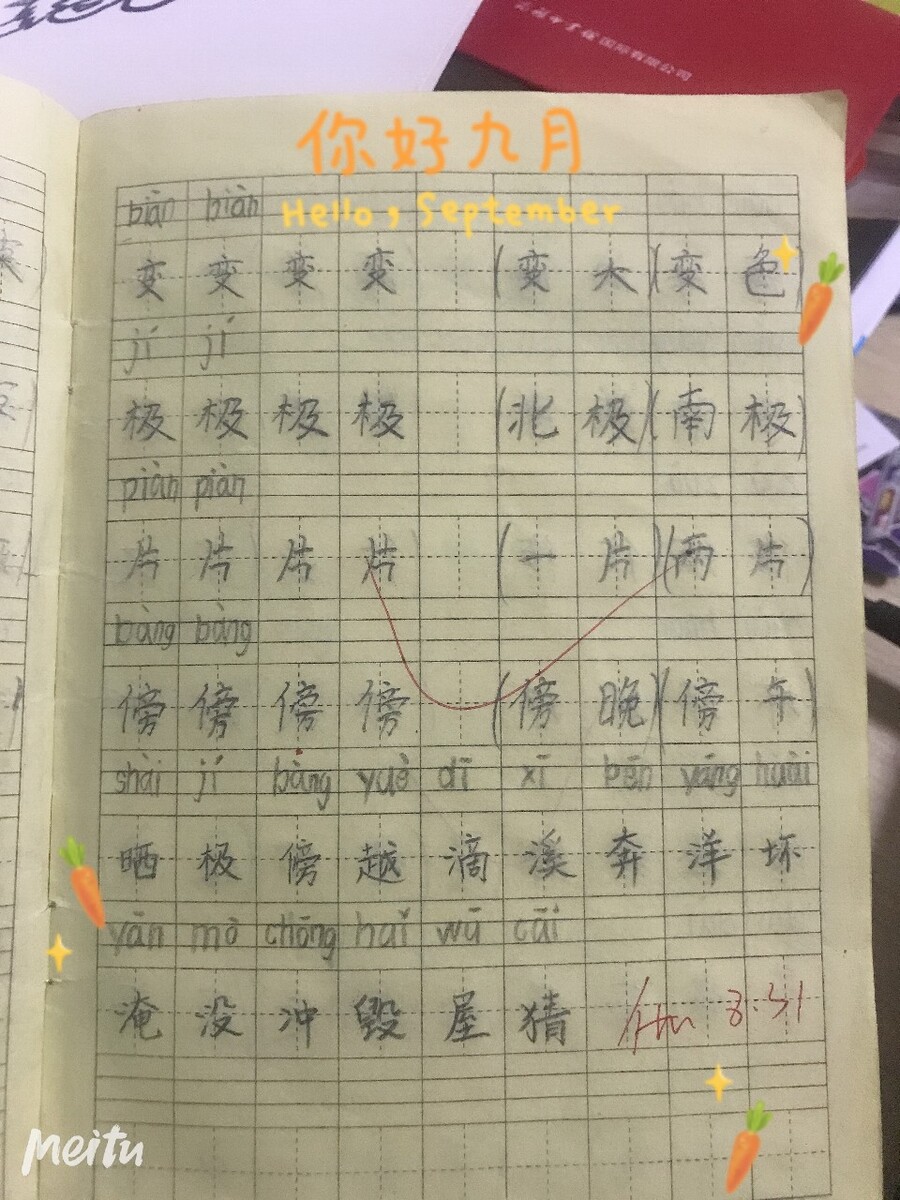 国际有限公司
你好九月
biàn biàn
Hello, September
变 变 变 变 (变 大)(变 色)
jí jí
极 极 极 极 (北 极)(南 极)
piàn piàn
片 片 片 片 (一 片)(两 片)
bàng bàng
傍 傍 傍 傍 (傍 晚)(傍 午)
shài jí bàng yuè dī xī bēn yáng huài
晒 极 傍 越 滴 溪 奔 洋 坏
yān mò chōng huǐ wū cāi
淹 没 冲 毁 屋 猜
8.31
Meitu